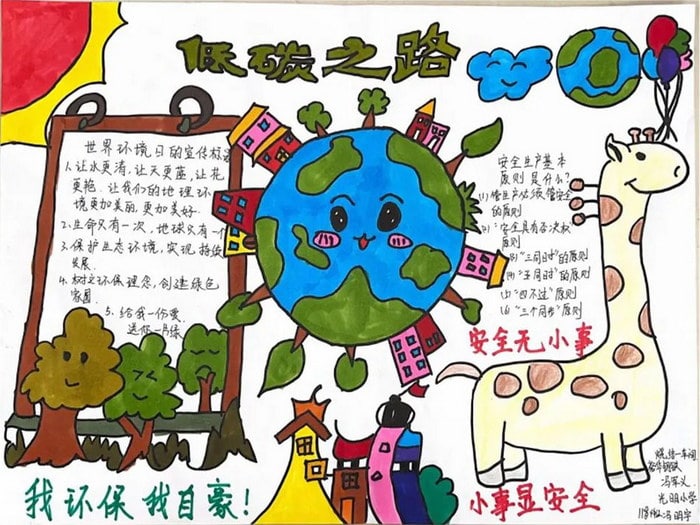 低碳之路
世界环境日的宣传标语
1.让水更清,让天更蓝,让花
更艳.让我们的地理环
境更加美丽,更加美好.
2.生命只有一次,地球只有一个
3.保护生态环境,实现持续
发展.
4.树立环保理念,创建绿色
家园.
5.给我一份爱
送你一片绿
安全生产基本
原则是什么?
(1)管生产必须管安全
的原则
(2)"安全具有否决权"
原则
(3)"三同时"的原则
(4)"五同时"的原则
(5)"四不过"原则
(6)"三个同步"原则
安全无小事
小事显安全
我环保 我自豪!
烧结一车间
冯军义
光明小学
冯明宇